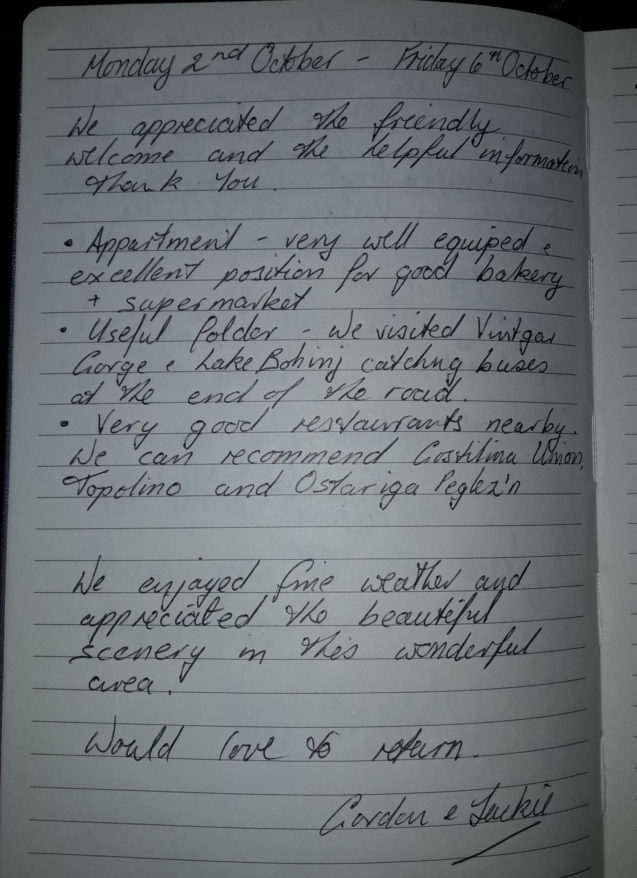 Monday 2nd October - Friday 6th October
We appreciated the friendly
welcome and the helpful information
Thank You.
• Appartment - very well equiped &
excellent position for good bakery
+ supermarket
• Useful Folder - We visited Vintgar
Gorge & Lake Bohinj catching buses
at the end of the road.
• Very good restaurants nearby.
We can recommend Gostilina Union,
Topolino and Ostariga Peglez'n
We enjoyed fine weather and
appreciated the beautiful
scenery in this wonderful
area.
Would love to return.
Gordon & Jackie